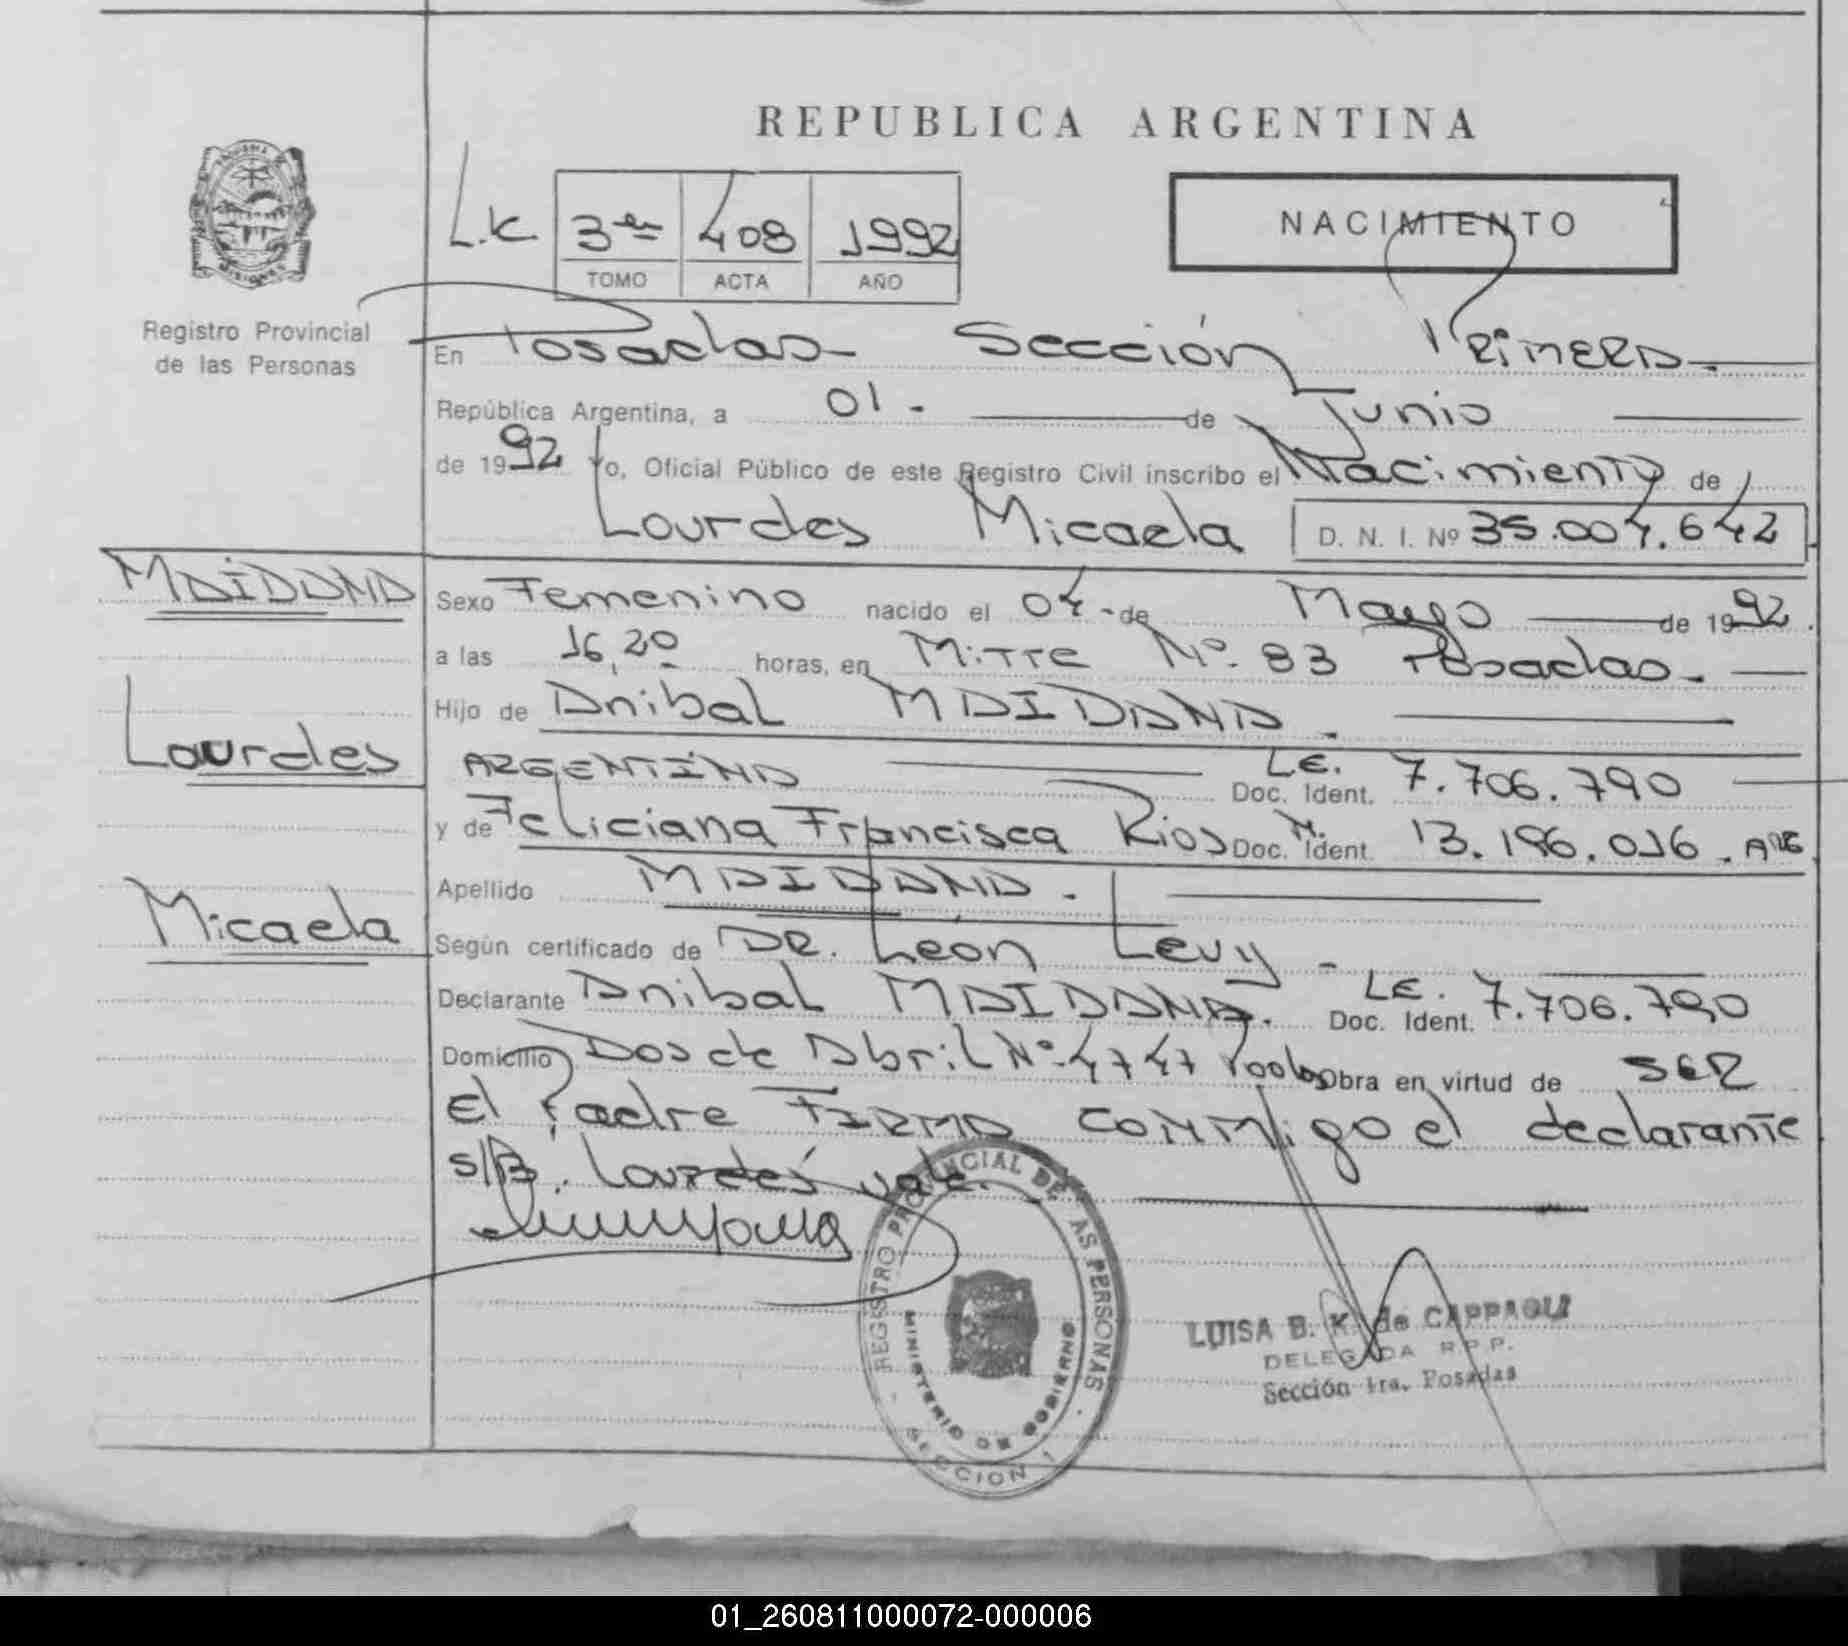 REPUBLICA ARGENTINA
L.K. 3er 408 1992
TOMO ACTA AÑO
NACIMIENTO
Registro Provincial
de las Personas
En Posadas Sección Primera.
República Argentina, a 01.- de Junio
de 1992 Yo, Oficial Público de este Registro Civil inscribo el Nacimiento de
Lourdes Micaela D. N. I. Nº 35.004.642
MAIDANA
Sexo Femenino nacido el 04.- de Mayo de 1992.
a las 16,20 horas, en Mitre Nº. 83 Posadas.-
Hijo de Anibal MAIDANA.
ARGENTINA L.E. Doc. Ident. 7.706.790
Lourdes
y de Feliciana Francisca Rios Doc. Ident. 13.196.016. ARG.
Apellido MAIDANA.-
Micaela
Según certificado de DR. León Levy -
Declarante Anibal MAIDANA. L.E. Doc. Ident. 7.706.790
Domicilio Dos de Abril Nº 4747 Obra en virtud de SER
El Padre FIRMA CONMigo el declarante
S/B. Lourdes vale.
REGISTRO PROVINCIAL DE LAS PERSONAS
MINISTERIO DE GOBIERNO
SECCION 1
LUISA B. K. de CAPPAGLI
DELEGADA R.P.P.
Sección 1ra. Posadas
01_260811000072-000006